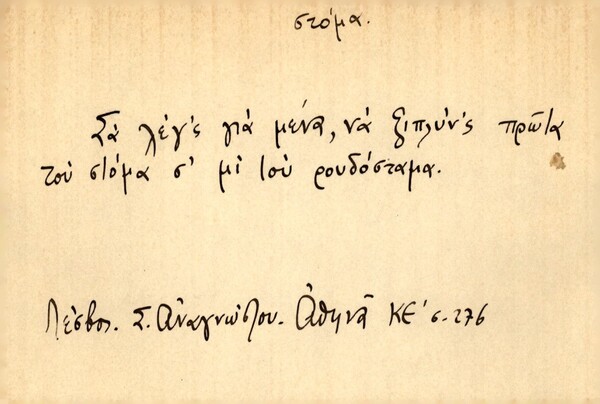 στόμα.
Σὰ λέγ'ς γιὰ μένα, νὰ ξιπλύν'ς πρῶτα
τοὺ στόμα σ' μὶ τοὺ ρουδόσταμα.
Λέσβος. Σ. Ἀναγνώστου. Ἀθηνᾶ ΚΕ' σ. 276